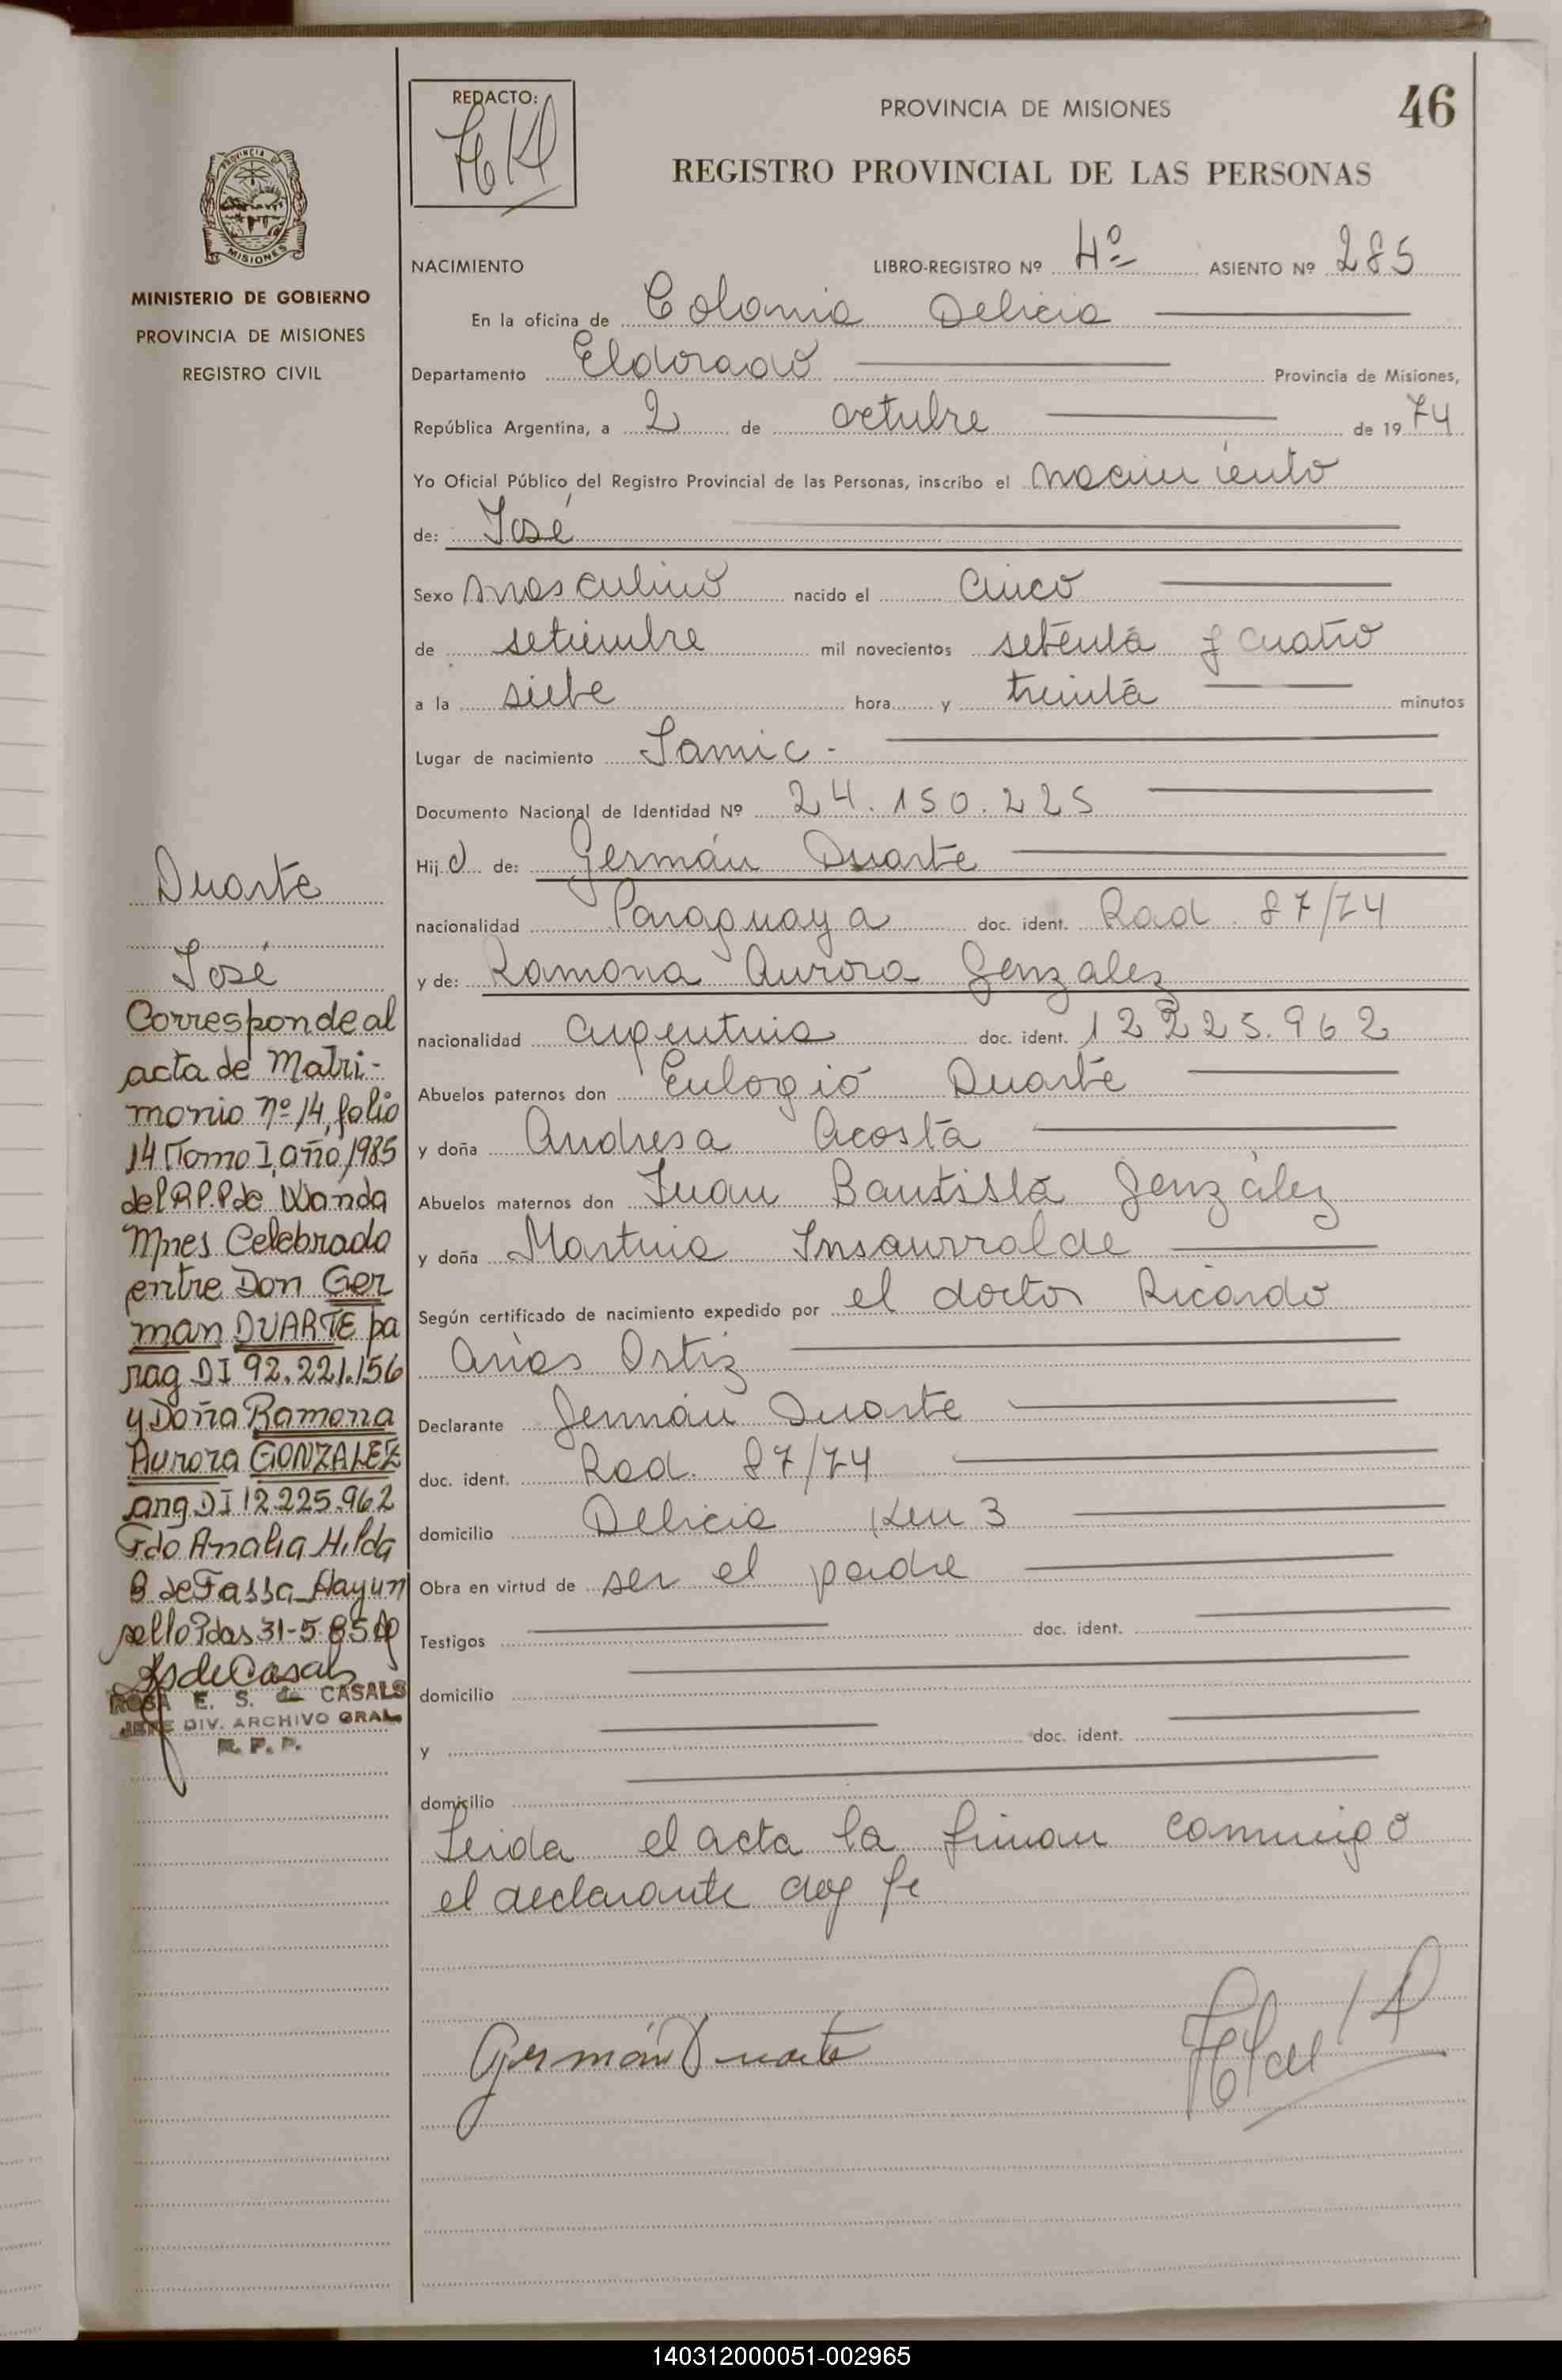 REDACTO:
PROVINCIA DE MISIONES
46
REGISTRO PROVINCIAL DE LAS PERSONAS
PROVINCIA DE
MISIONES
MINISTERIO DE GOBIERNO
PROVINCIA DE MISIONES
REGISTRO CIVIL
NACIMIENTO LIBRO-REGISTRO Nº 4º ASIENTO Nº 285
En la oficina de Colonia Delicia
Departamento Eldorado Provincia de Misiones,
República Argentina, a 2 de octubre de 1974
Yo Oficial Público del Registro Provincial de las Personas, inscribo el nacimiento
de: José
Sexo masculino nacido el cinco
de setiembre mil novecientos setenta y cuatro
a la siete hora y treinta minutos
Lugar de nacimiento Samic -
Documento Nacional de Identidad Nº 24.150.225
Hijo de: Germán Duarte
nacionalidad Paraguaya doc. ident. Rad. 87/74
y de: Ramona Aurora Genzalez
nacionalidad argentina doc. ident. 12225.962
Abuelos paternos don Eulogio Duarte
y doña Andresa Acosta
Abuelos maternos don Juan Bautista Genzález
y doña Martina Insaurralde
Según certificado de nacimiento expedido por el doctor Ricardo
Arias Ortiz
Declarante Germán Duarte
doc. ident. Rad. 87/74
domicilio Delicia Km 3
Obra en virtud de ser el padre
Testigos doc. ident.
domicilio
y doc. ident.
domicilio
Leida el acta la firman conmigo
el declarante doy fe
Germán Duarte
Duarte
José
Corresponde al
acta de Matri-
monio nº 14, folio
14 Tomo I, año 1985
del R.P.P de Wanda
Mnes Celebrado
entre Don Ger
man DUARTE pa
rag DI 92.221.156
y Doña Ramona
Aurora GONZALEZ
arg DI 12.225.962
Fdo Analia Hilda
B de Fassa Hay un
sello Pdas 31-5-85
RS de Casals
ROSA E. S. de CASALS
JEFE DIV. ARCHIVO GRAL.
R. P. P.
140312000051-002965